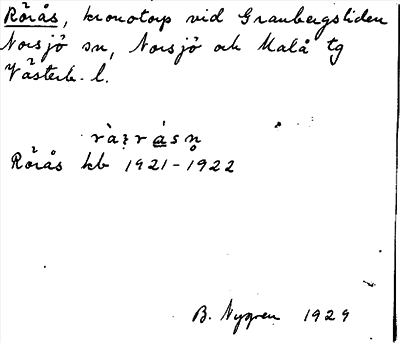 Rörås, kronotorp vid Granbergsliden
Norsjö sn, Norsjö och Malå tg
Västerb. l.
Rörås kb 1921-1922
B. Nygren 1929